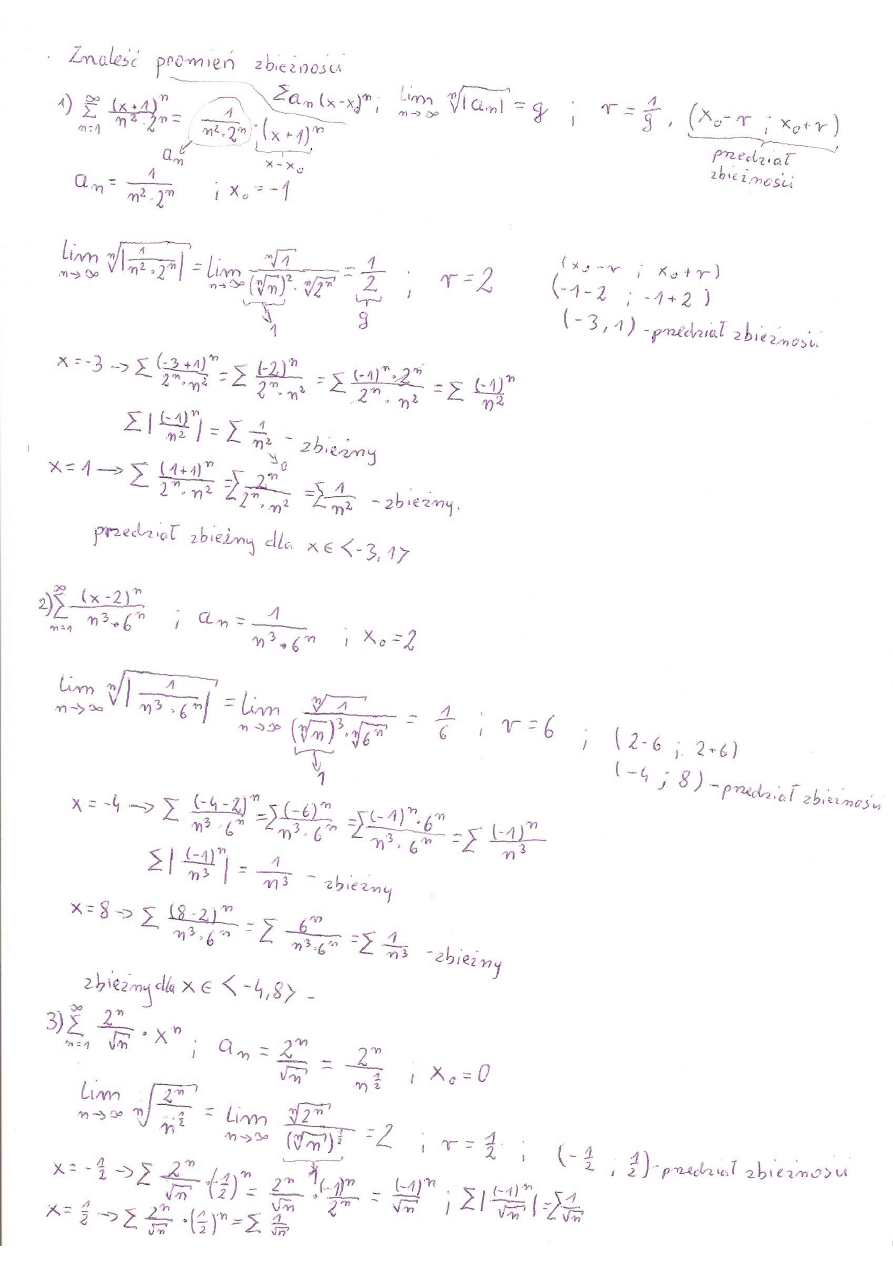 Znaleść promień zbieżności
1) ∑_{n=1}^{∞} (x+1)^n / (n²·2^n) = 1/(n²·2^n) · (x+1)^n   ∑a_n(x-x)^n ; lim_{n→∞} ⁿ√|a_n| = g ; r = 1/g , (x₀-r ; x₀+r)
a_n   x-x₀   przedział zbieżności
a_n = 1/(n²·2^n) ; x₀ = -1
lim_{n→∞} ⁿ√|1/(n²·2^n)| = lim_{n→∞} ⁿ√1 / ((ⁿ√n)²·ⁿ√2^n) = 1/2 ; r = 2   (x₀-r ; x₀+r)
1   g   (-1-2 ; -1+2)
(-3,1) - przedział zbieżności
x=-3 → ∑ (-3+1)^n / (2^n·n²) = ∑ (-2)^n / (2^n·n²) = ∑ (-1)^n·2^n / (2^n·n²) = ∑ (-1)^n / n²
∑ |(-1)^n / n²| = ∑ 1/n² - zbieżny
0
x=1 → ∑ (1+1)^n / (2^n·n²) = ∑ 2^n / (2^n·n²) = ∑ 1/n² - zbieżny.
przedział zbieżny dla x∈<-3,1>
2) ∑_{n=1}^{∞} (x-2)^n / (n³·6^n) ; a_n = 1/(n³·6^n) ; x₀=2
lim_{n→∞} ⁿ√|1/(n³·6^n)| = lim_{n→∞} ⁿ√1 / ((ⁿ√n)³·ⁿ√6^n) = 1/6 ; r = 6 ; (2-6 ; 2+6)
1   (-4 ; 8) - przedział zbieżności
x=-4 → ∑ (-4-2)^n / (n³·6^n) = ∑ (-6)^n / (n³·6^n) = ∑ (-1)^n·6^n / (n³·6^n) = ∑ (-1)^n / n³
∑ |(-1)^n / n³| = 1/n³ - zbieżny
x=8 → ∑ (8-2)^n / (n³·6^n) = ∑ 6^n / (n³·6^n) = ∑ 1/n³ - zbieżny
zbieżny dla x∈<-4,8> -
3) ∑_{n=1}^{∞} 2^n/√n · x^n ; a_n = 2^n/√n = 2^n / n^{1/2} ; x₀=0
lim_{n→∞} ⁿ√(2^n / n^{1/2}) = lim_{n→∞} ⁿ√2^n / (ⁿ√n)^{1/2} = 2 ; r = 1/2 ; (-1/2 ; 1/2) - przedział zbieżności
1
x=-1/2 → ∑ 2^n/√n · (-1/2)^n = 2^n/√n · (-1)^n/2^n = (-1)^n/√n ; ∑|(-1)^n/√n| = ∑ 1/√n
x=1/2 → ∑ 2^n/√n · (1/2)^n = ∑ 1/√n